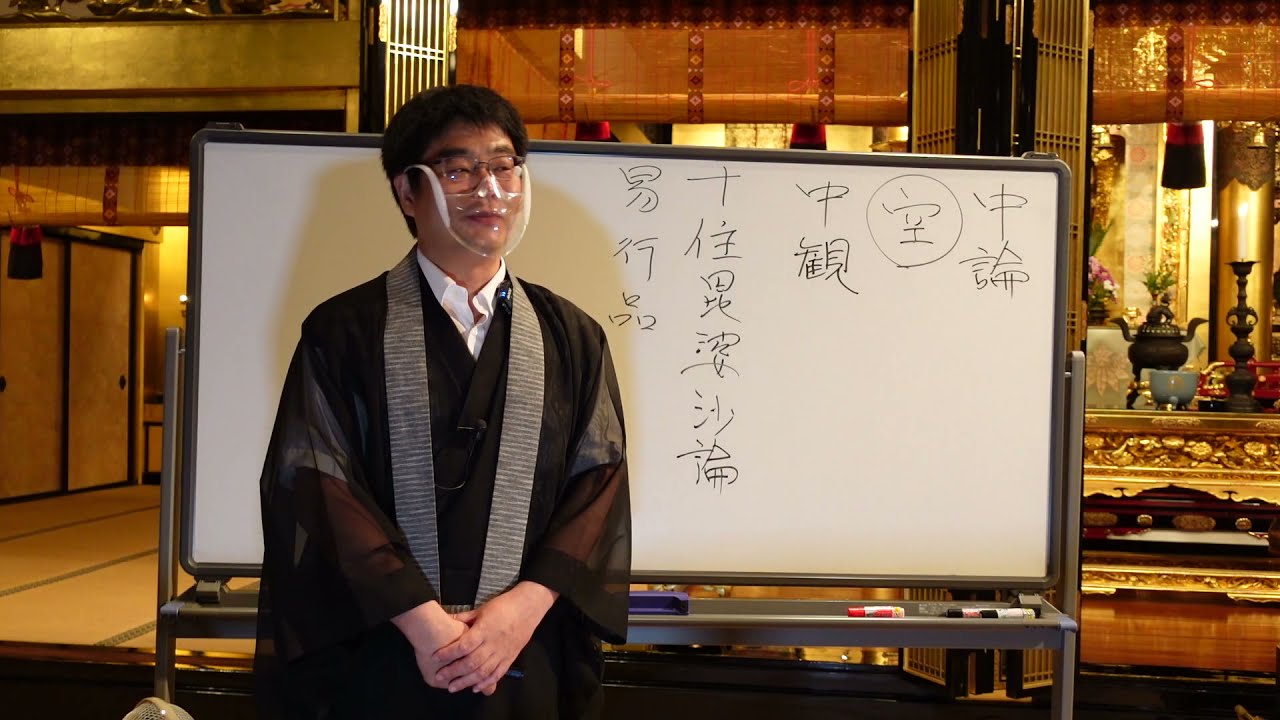 中論
空
中観
十住毘婆沙論
易行品